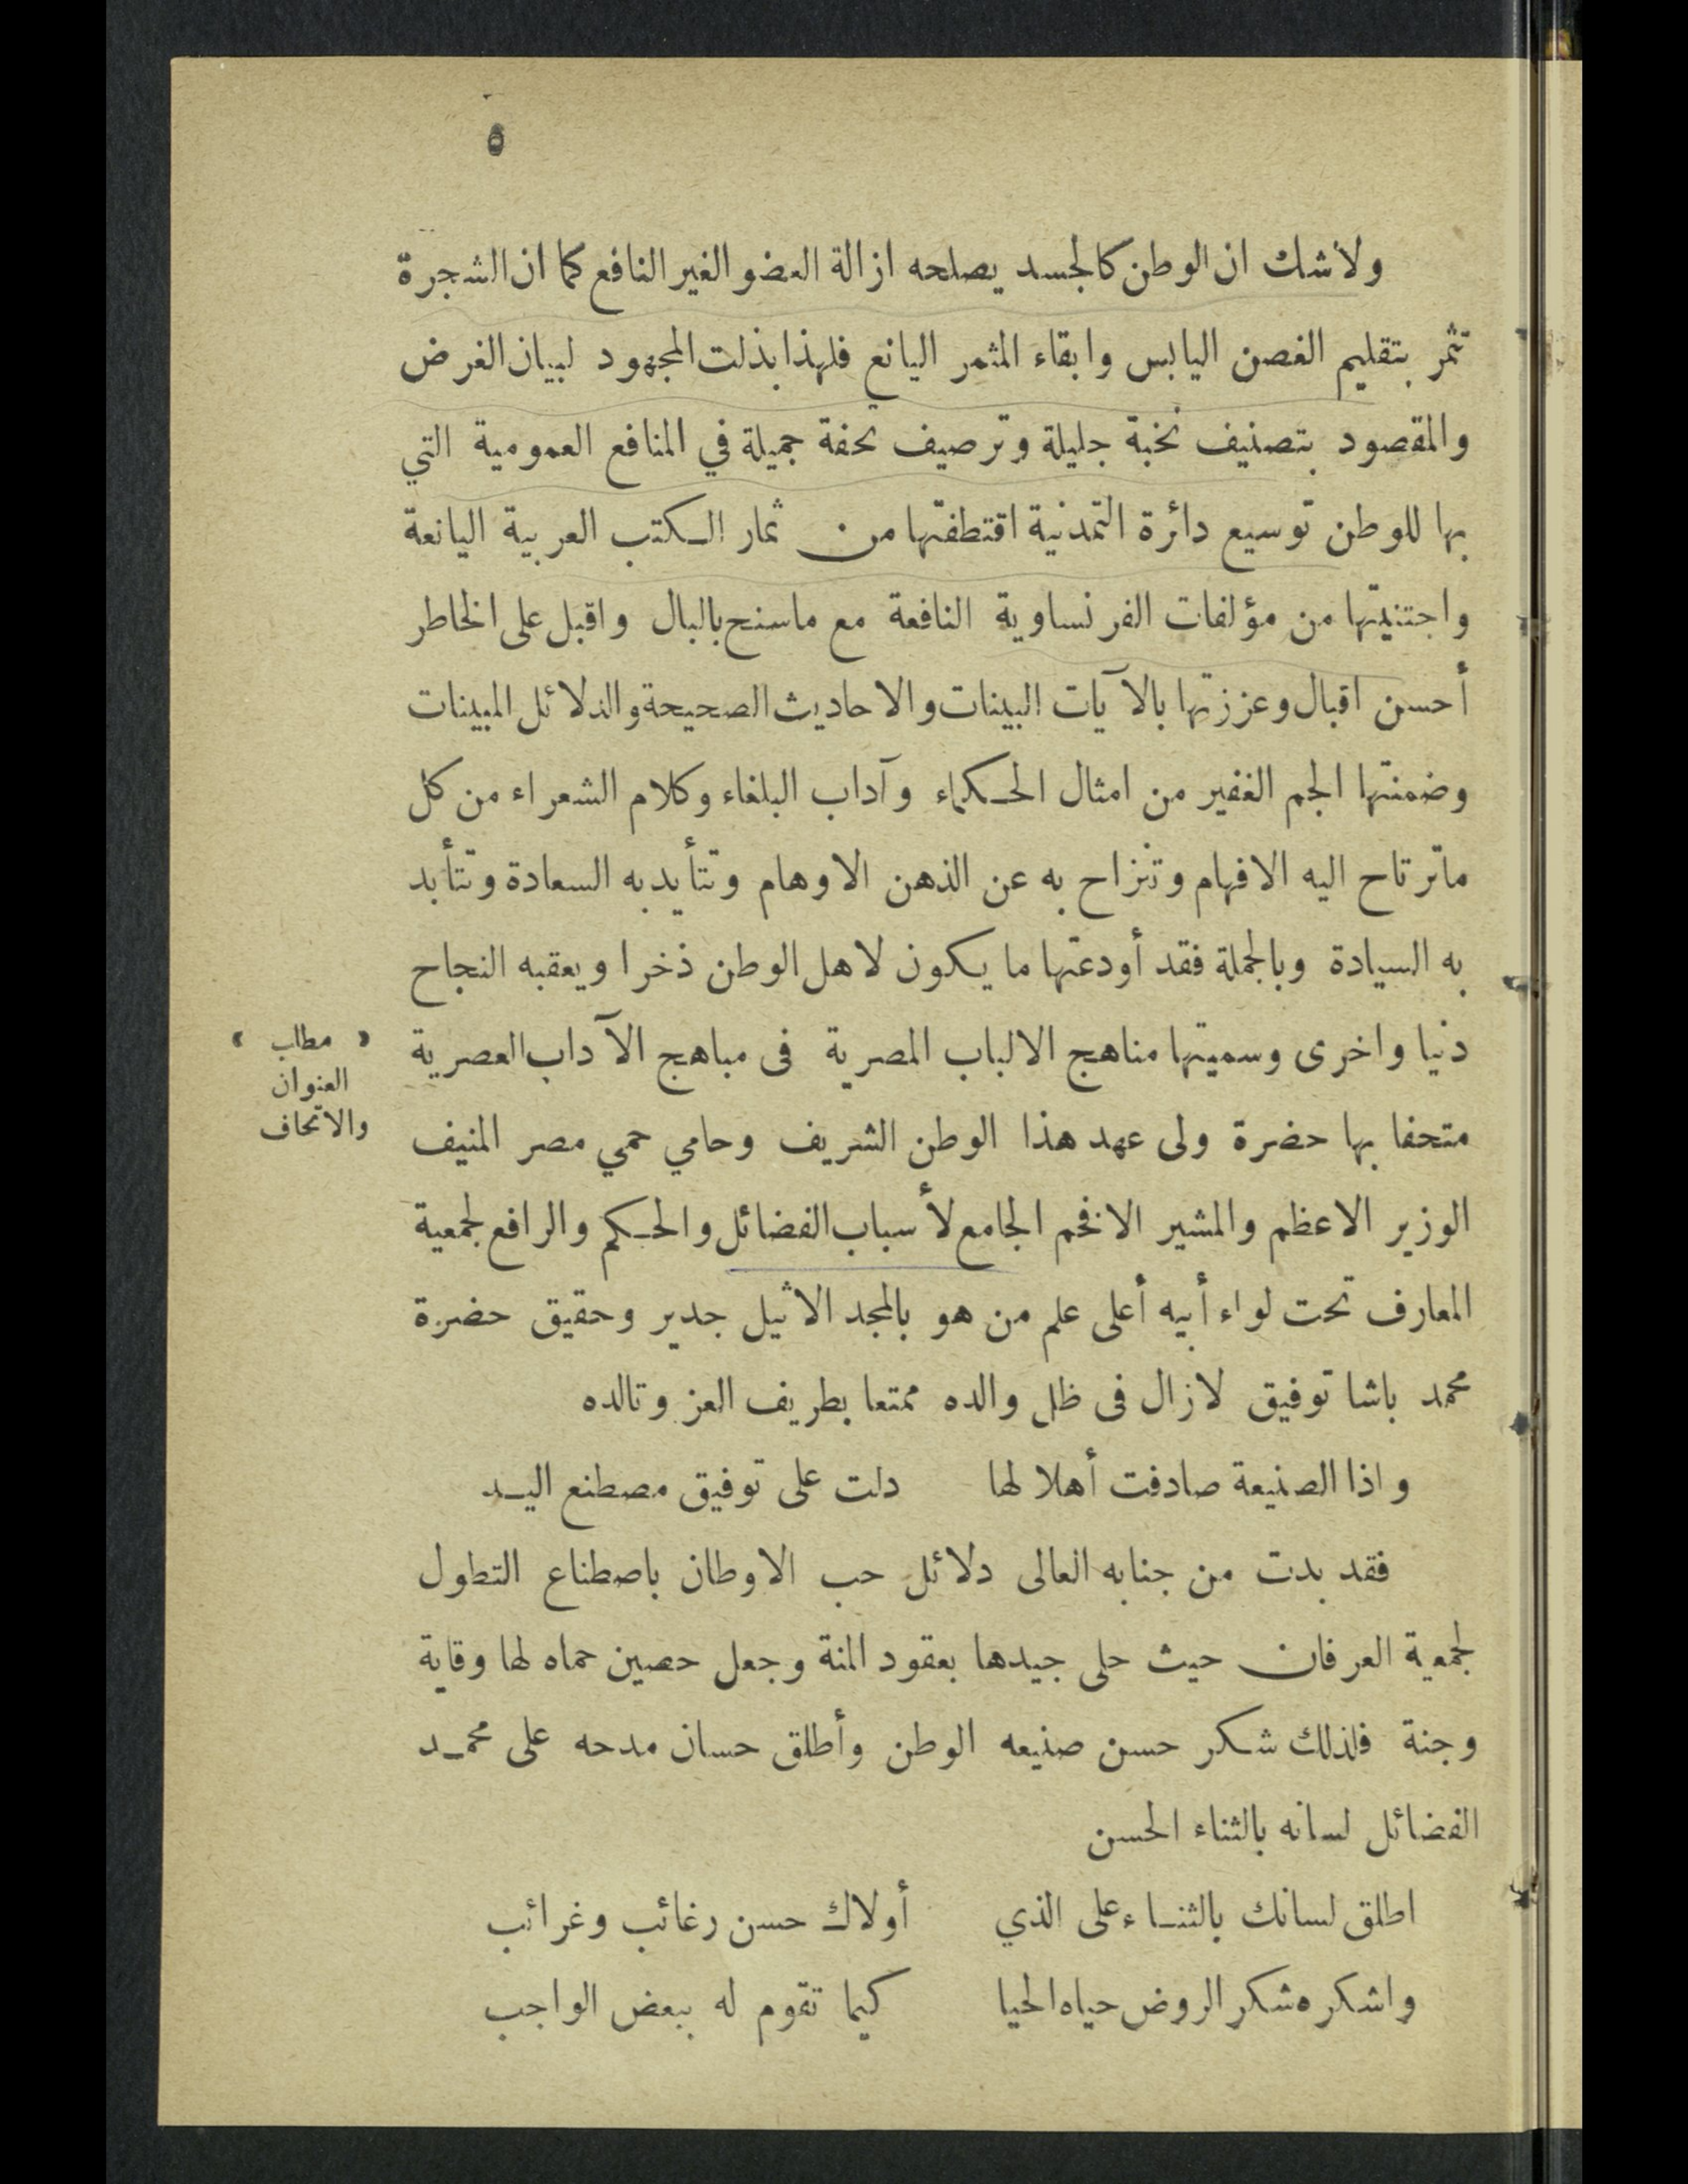 ٥
ولاشك ان الوطن كالجسد يصلحه ازالة العضو الغير النافع كما ان الشجرة
تثمر بتقليم الغصن اليابس وابقاء المثمر اليانع فلهذا بذلت المجهود لبيان الغرض
والمقصود بتصنيف نخبة جليلة وترصيف تحفة جميلة في المنافع العمومية التي
بها للوطن توسيع دائرة التمدنية اقتطفتها من ثمار الكتب العربية اليانعة
واجتنيتها من مؤلفات الفرنساوية النافعة مع ماسنح بالبال واقبل على الخاطر
أحسن اقبال وعززتها بالآيات البينات والاحاديث الصحيحة والدلائل المبينات
وضمنتها الجم الغفير من امثال الحكماء وآداب البلغاء وكلام الشعراء من كل
ماترتاح اليه الافهام وتنزاح به عن الذهن الاوهام وتتأيد به السعادة وتتأبد
به السيادة وبالجملة فقد أودعتها ما يكون لاهل الوطن ذخرا ويعقبه النجاح
دنيا واخرى وسميتها مناهج الالباب المصرية فى مباهج الآداب العصرية
﴿ مطلب ﴾
العنوان
والاتحاف
متحفا بها حضرة ولى عهد هذا الوطن الشريف وحامي حمي مصر المنيف
الوزير الاعظم والمشير الافخم الجامع لأسباب الفضائل والحكم والرافع لجمعية
المعارف تحت لواء أبيه أعلى علم من هو بالمجد الاثيل جدير وحقيق حضرة
محمد باشا توفيق لازال فى ظل والده ممتعا بطريف العز وتالده
واذا الصنيعة صادفت أهلا لها دلت على توفيق مصطنع اليد
فقد بدت من جنابه العالى دلائل حب الاوطان باصطناع التطول
لجمعية العرفان حيث حلى جيدها بعقود المنة وجعل حصين حماه لها وقاية
وجنة فلذلك شكر حسن صنيعه الوطن وأطلق حسان مدحه على محمد
الفضائل لسانه بالثناء الحسن
اطلق لسانك بالثناء على الذي أولاك حسن رغائب وغرائب
واشكره شكر الروض حياه الحيا كيما تقوم له ببعض الواجب